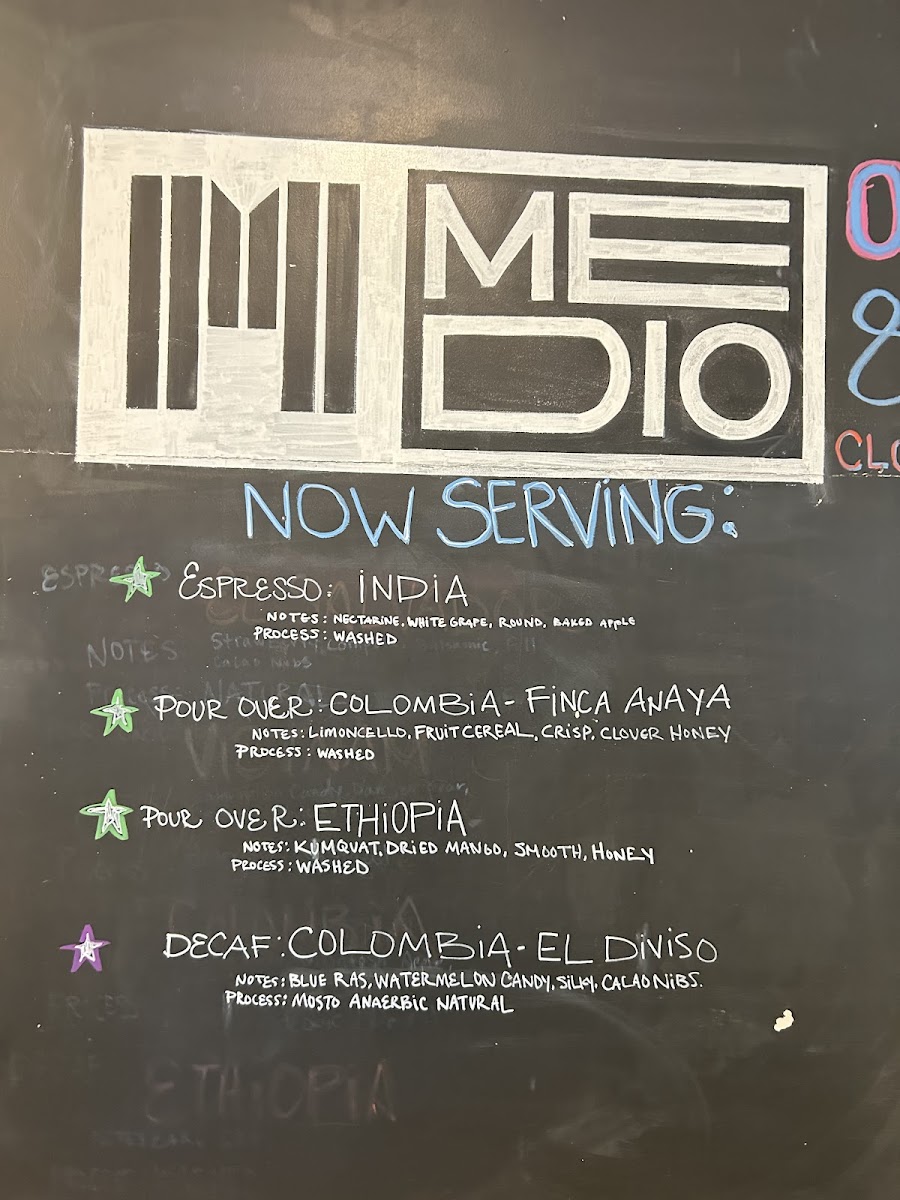 MEDIO
NOW SERVING:
ESPRESSO: INDIA
NOTES: NECTARINE, WHITE GRAPE, ROUND, BAKED APPLE
PROCESS: WASHED
POUR OVER: COLOMBIA - FINCA ANAYA
NOTES: LIMONCELLO, FRUIT CEREAL, CRISP, CLOVER HONEY
PROCESS: WASHED
POUR OVER: ETHIOPIA
NOTES: KUMQUAT, DRIED MANGO, SMOOTH, HONEY
PROCESS: WASHED
DECAF: COLOMBIA - EL DIVISO
NOTES: BLUE RAS, WATERMELON CANDY, SILKY, CALAO NIBS.
PROCESS: MOSTO ANAERBIC NATURAL
ETHIOPIA